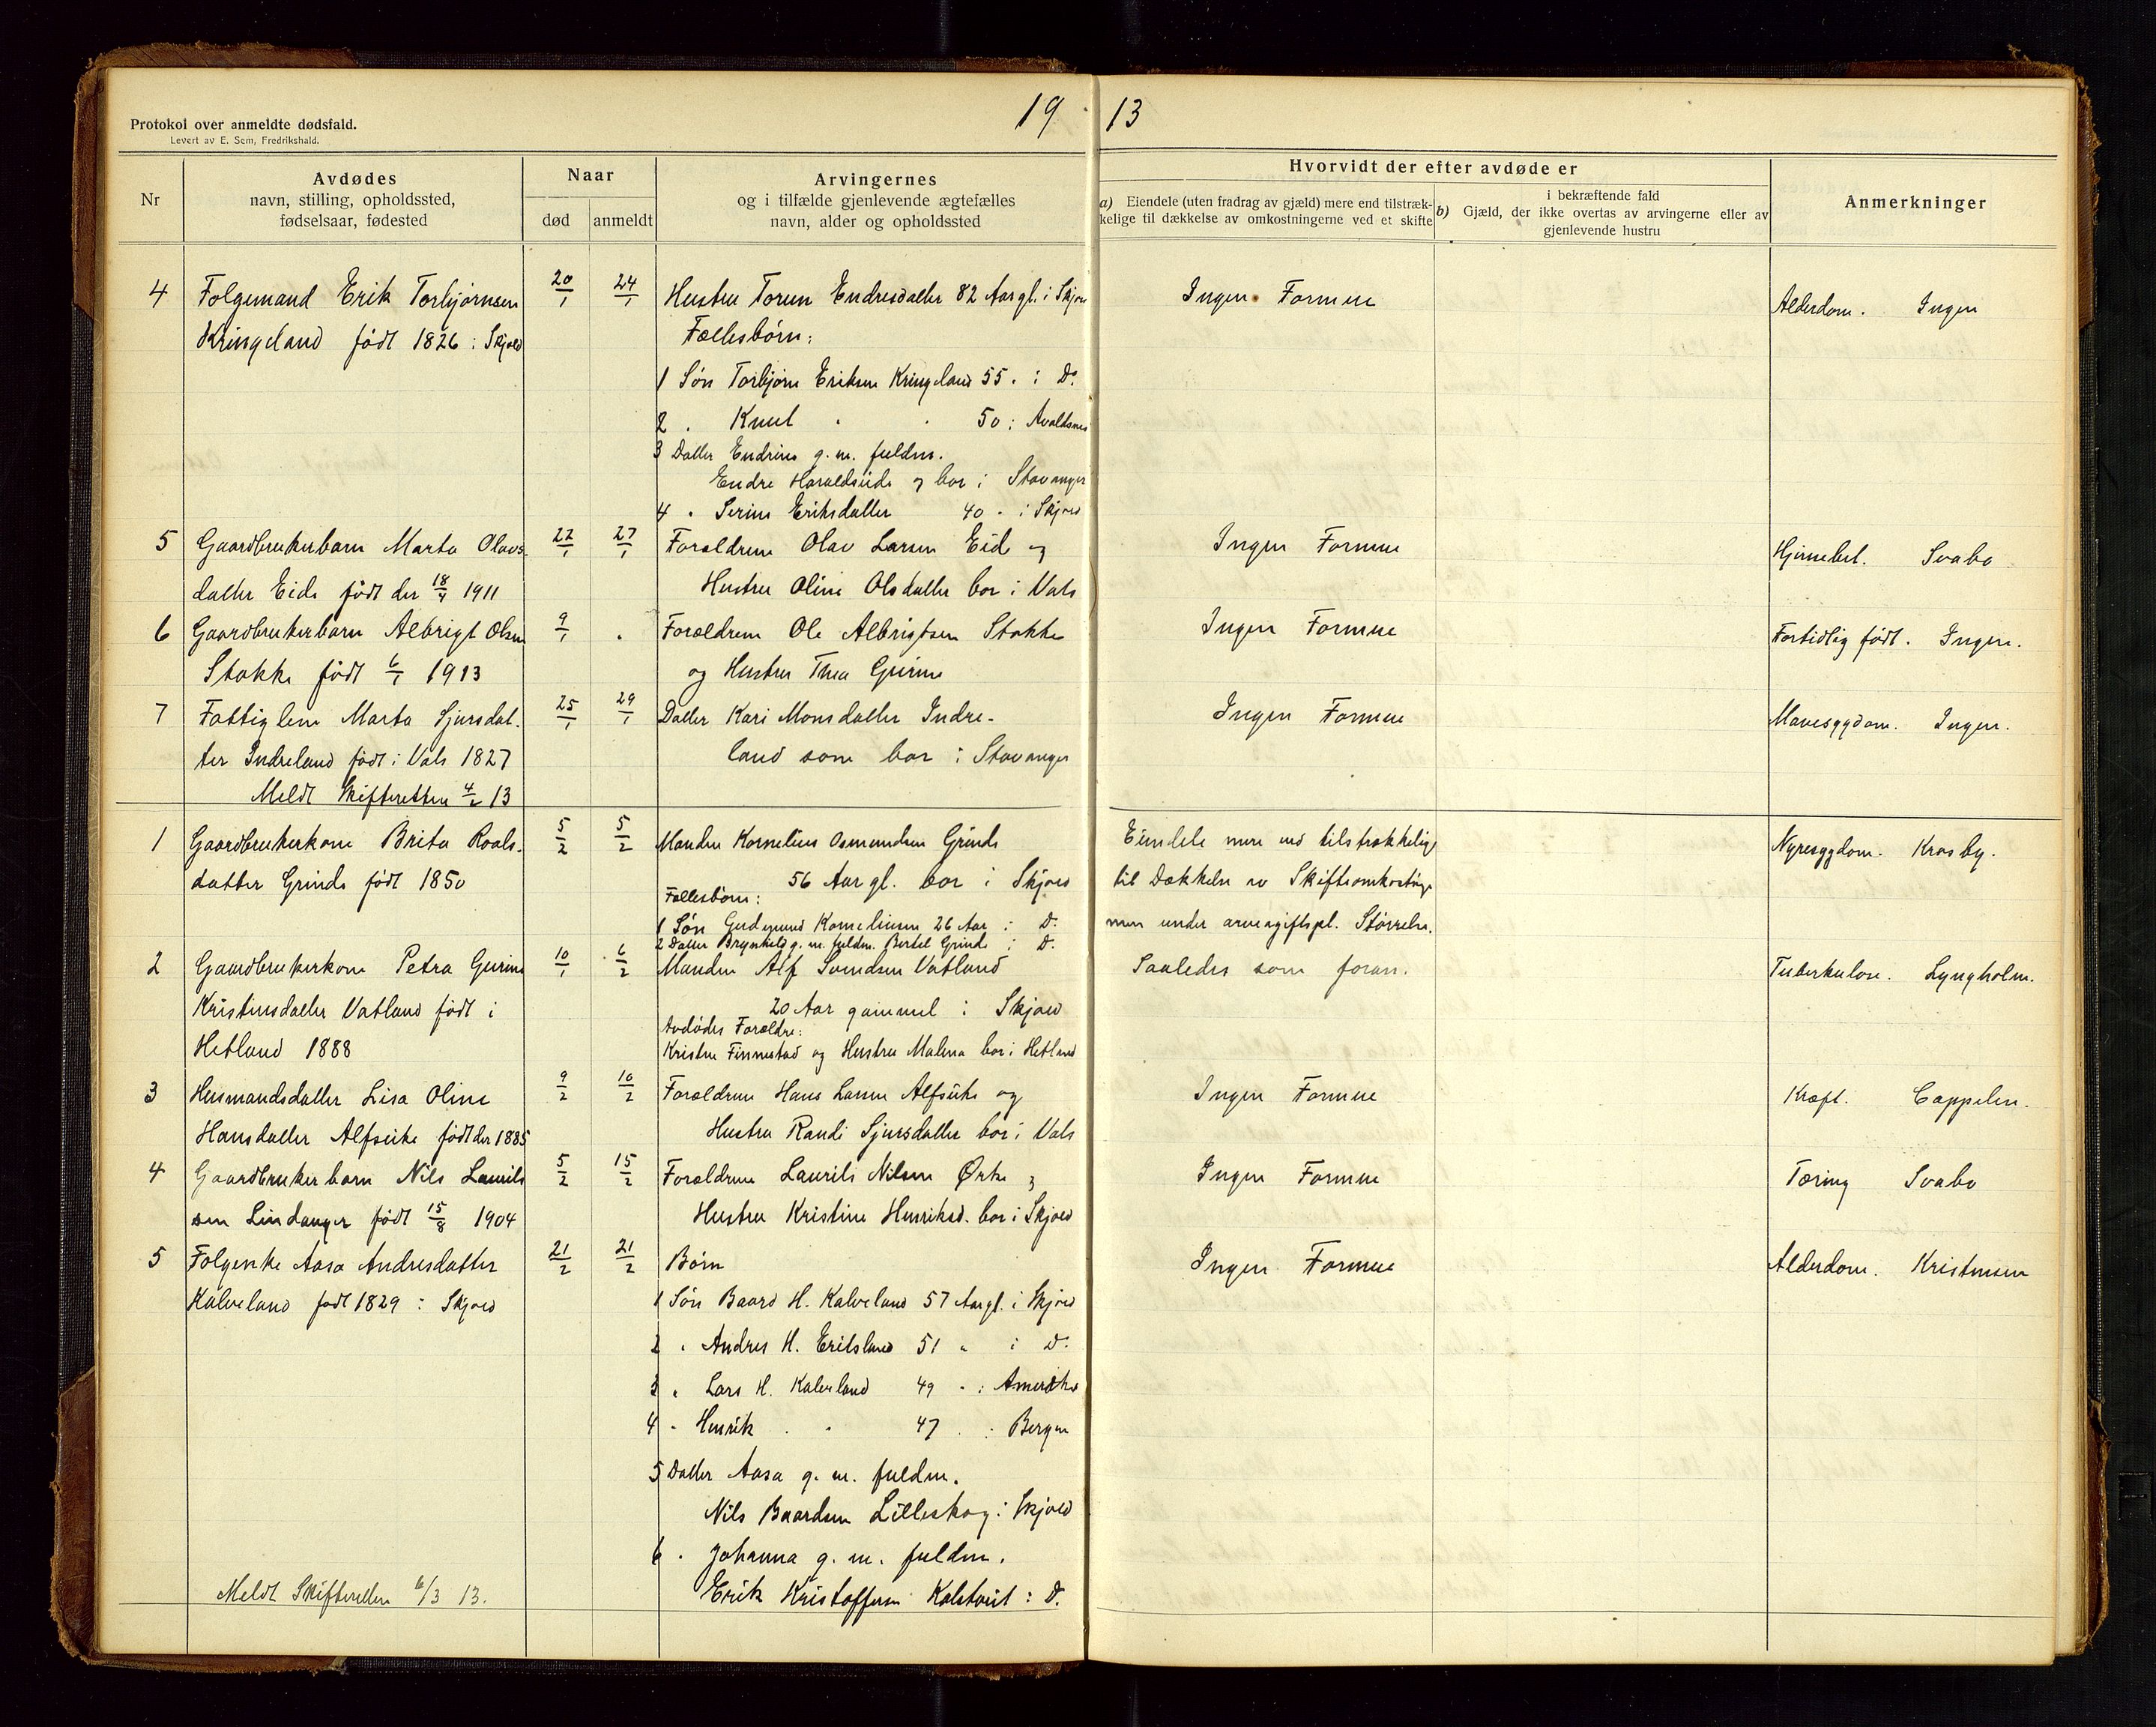 19 13
Protokol over anmeldte dødsfald.
Levert av E. Sem, Fredrikshald.
Nr
Avdødes
navn, stilling, opholdssted,
fødselsaar, fødested
Naar
død
anmeldt
Arvingernes
og i tilfælde gjenlevende ægtefælles
navn, alder og opholdssted
Hvorvidt der efter avdøde er
a) Eiendele (uten fradrag av gjæld) mere end tilstræk-
kelige til dækkelse av omkostningerne ved et skifte
i bekræftende fald
b) Gjæld, der ikke overtas av arvingerne eller av
gjenlevende hustru
Anmerkninger
4 Folgemand Erik Torbjørnsen 20/1 24/1 Hustru Torun Endresdatter 82 Aar gl. i Skjold Ingen Formue Alderdom. Ingen
Kringeland født 1826 i Skjold Fællesbørn:
1 Søn Torbjørn Eriksen Kringeland 55 " i Do
2 " Knut " " 50 i Avaldsnes
3 Datter Endrine g. m. fuldm.
Endre Haraldseide og bor i Stavanger
4 " Serine Eriksdatter 40 " i Skjold
5 Gaardbrukerbarn Marta Olavs- 22/1 27/1 Forældrene Olav Larsen Eide og Ingen Formue Hjernebet. Svabo
datter Eide født den 18/4 1911 Hustru Oline Olsdatter bor i Vats
6 Gaardbrukerbarn Albrigt Olsen 9/1 " Forældrene Ole Albrigtsen Stakke Ingen Formue Fortidlig født. Ingen.
Stakke født 6/1 1913 og Hustru Thea Gurine
7 Fattiglem Marta Sjursdat- 25/1 29/1 Datter Kari Monsdatter Indre- Ingen Formue Mavesygdom. Ingen.
ter Indreland født i Vats 1827 land som bor i Stavanger
Meldt Skifteretten 4/2 13
1 Gaardbrukerkone Brita Roals- 5/2 5/2 Manden Kornelius Osmundsen Grinde Eiendele mere end tilstrækkelige Nyresygdom. Krosby.
datter Grinde født 1850 56 Aar gl. bor i Skjold til Dækkelse av Skifteomkostninger
Fællesbørn:
1 Søn Gudmund Korneliusen 26 Aar i Do men under arveavgiftspl. Størrelse.
2 Datter Brynhild g. m. fuldm. Bertel Grinde i Do
2 Gaardbrukerkone Petra Gurine 10/1 6/2 Manden Alf Svendsen Vatland Saaledes som foran. Tuberkulose. Lyngholm.
Kristensdatter Vatland født i 20 Aar gammel i Skjold
Avdødes Forældre:
Hetland 1888 Kristen Finnestad og Hustru Malena bor i Hetland
3 Husmandsdatter Lisa Oline 9/2 10/2 Forældrene Hans Larsen Alfseike og Ingen Formue Kræft. Cappelen.
Hansdatter Alfseike født der 1885 Hustru Randi Sjursdatter bor i Vats
4 Gaardbrukerbarn Nils Laurits 5/2 15/2 Forældrene Laurits Nilsen Ørke og Ingen Formue Tæring Svabo
sen Lindanger født 15/8 1904 Hustru Kristine Henriksd. bor i Skjold
5 Folgenke Aasa Andresdatter 21/2 21/2 Børn Ingen Formue Alderdom. Kristensen
Kalveland født 1829 i Skjold 1 Søn Baard H. Kalveland 57 Aar gl. i Skjold
2 " Andres H. 51 " i Do
3 " Lars H. Kalveland 49 " i Amerika
4 " Henrik " " 47 " i Bergen
5 Datter Aasa g. m. fuldm.
Nils Baardsen Lilleskog i Skjold
6 " Johanna g. m. fuldm.
Meldt Skifteretten 6/3 13. Erik Kristoffersen Kalstveit i Do